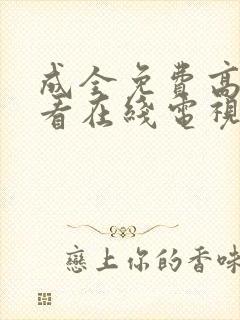 成全免費高
看在綫電視
戀上你的香味